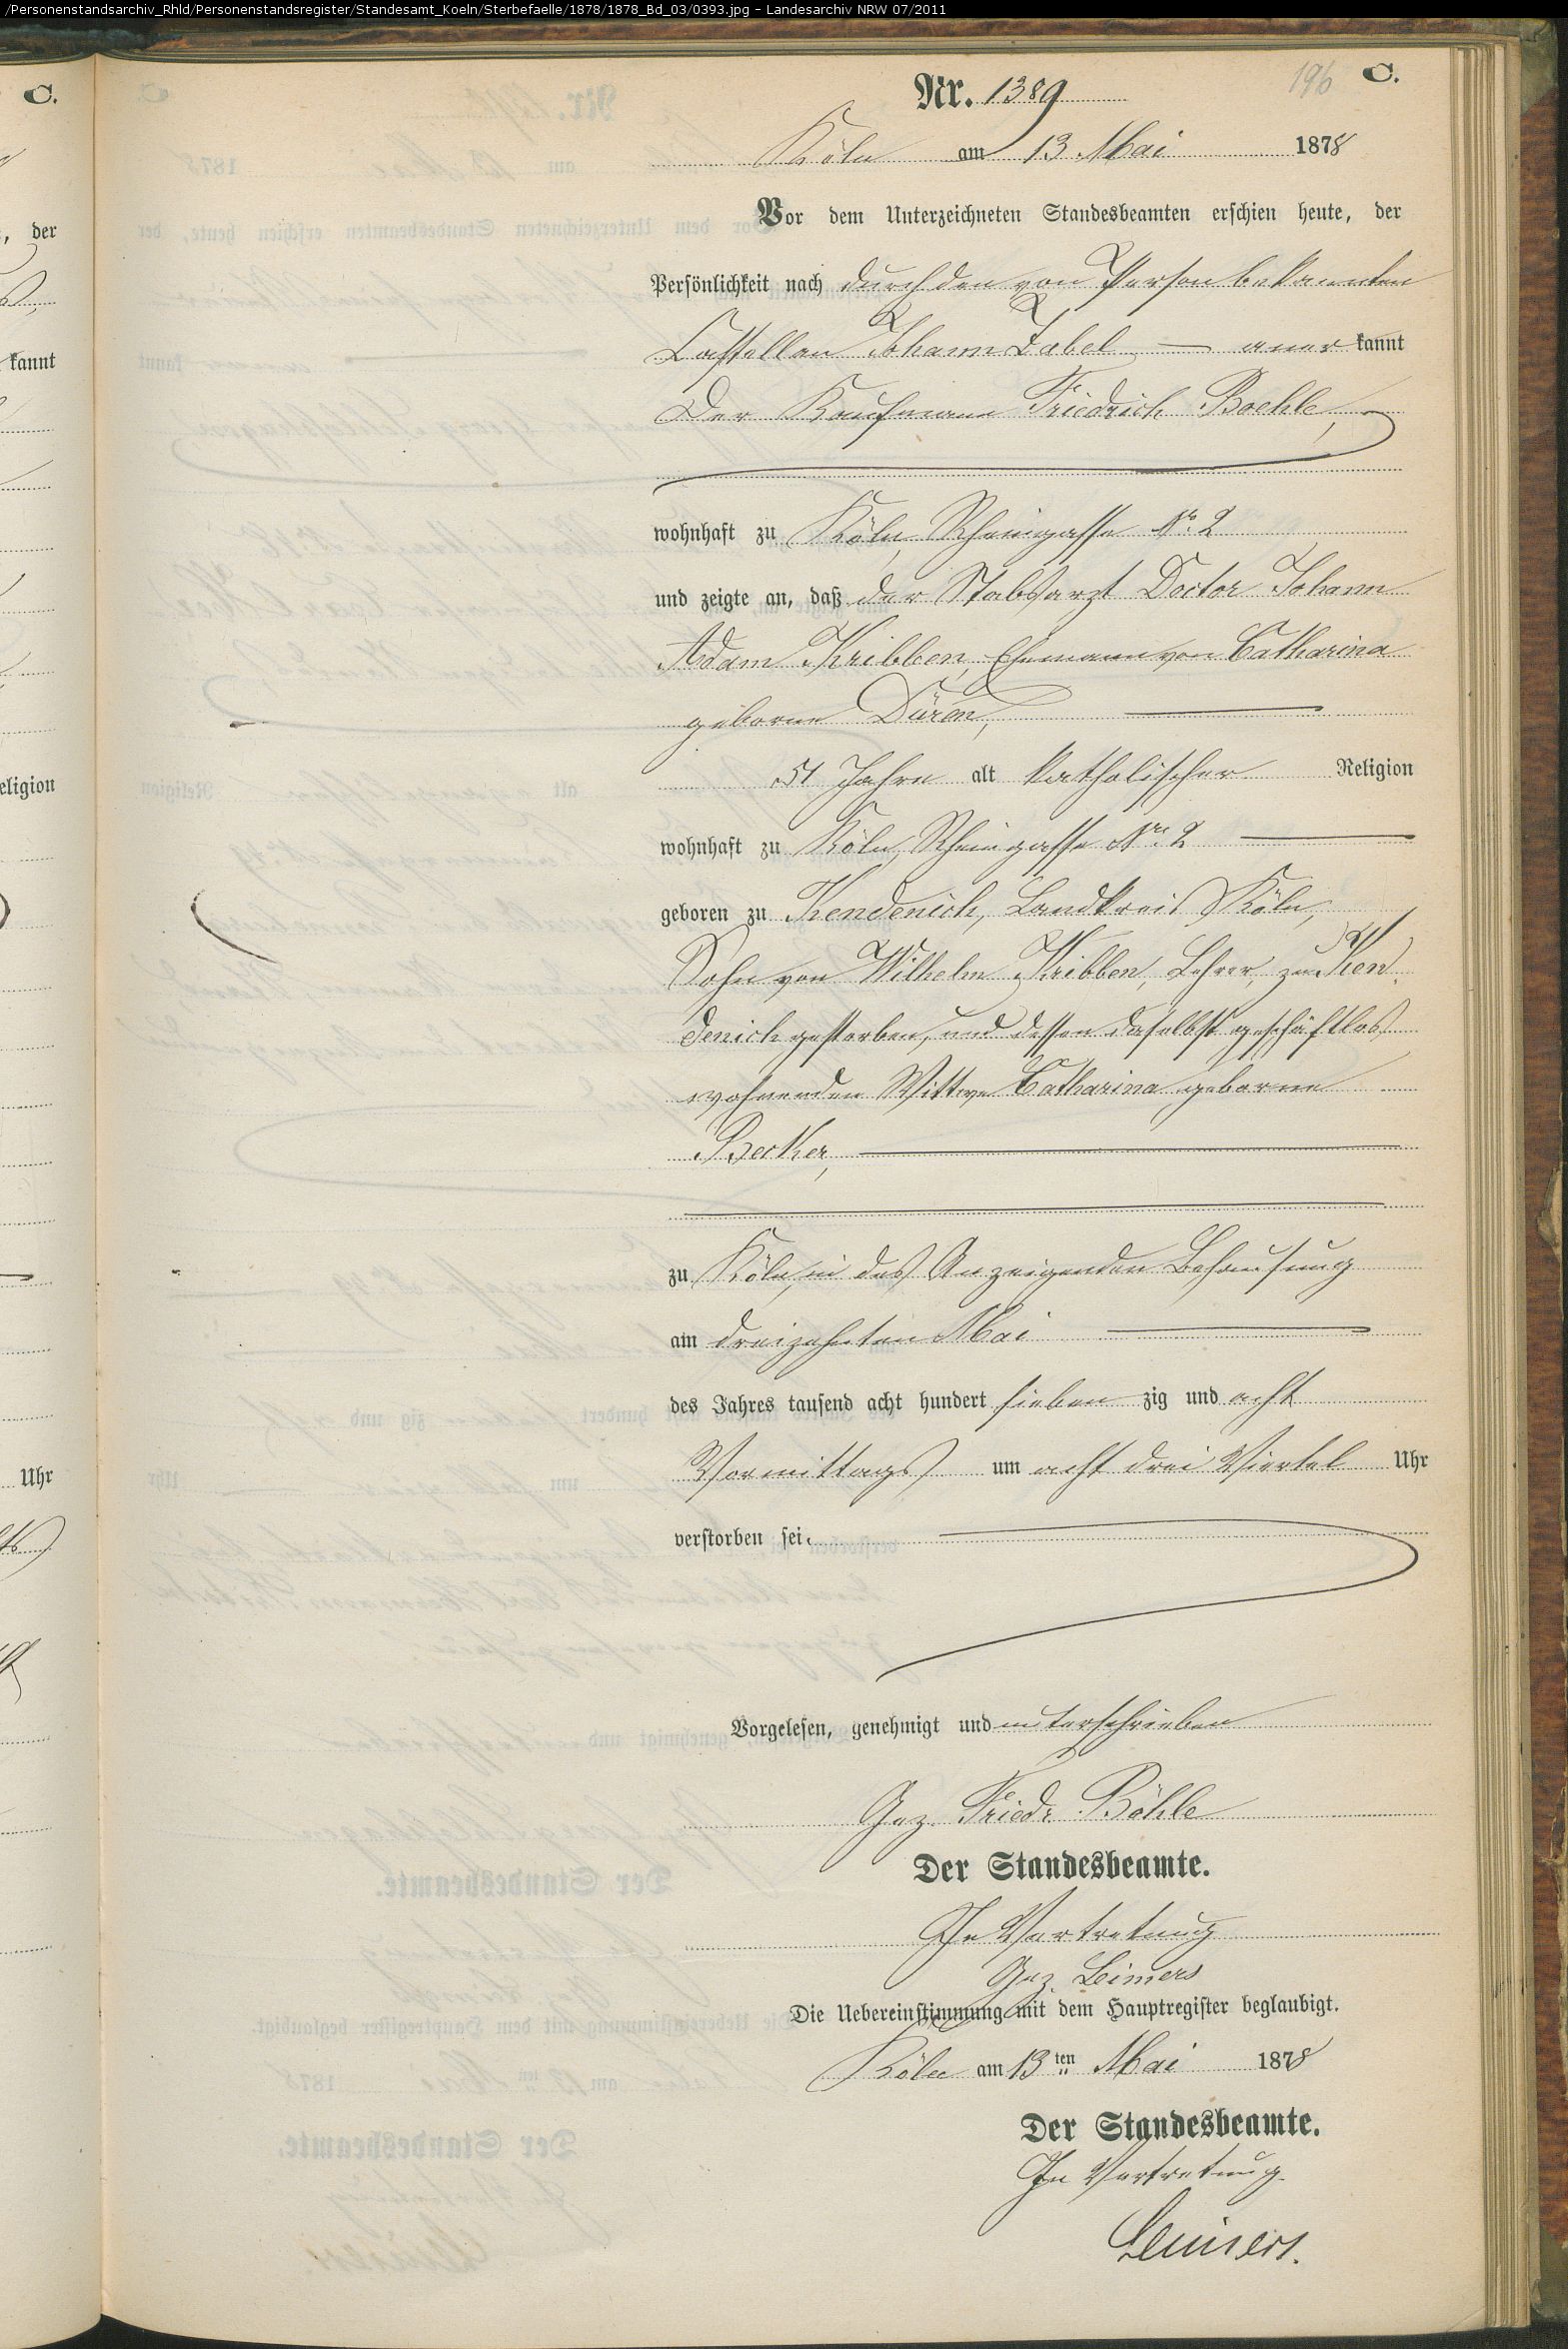 /Personenstandsarchiv_Rhld/Personenstandsregister/Standesamt_Koeln/Sterbefaelle/1878/1878_Bd_03/0393.jpg – Landesarchiv NRW 07/2011
C.
, der
kannt
eligion
Uhr
196 C.
Nr. 1389
Köln am 13 Mai 1878
Vor dem Unterzeichneten Standesbeamten erschien heute, der
Persönlichkeit nach durch den von Person bekannten
Castellan Johann Zabel — aner kannt
Der Kaufmann Friedrich Boehle,
wohnhaft zu Köln, Rheingasse No. 2
und zeigte an, daß der Stabsarzt Doctor Johann
Adam Kribben, Ehemann von Catharina
geborne Düren,
51 Jahre alt katholischer Religion
wohnhaft zu Köln, Rheingasse Nro. 2
geboren zu Kendenich, Landkreis Köln,
Sohn von Wilhelm Kribben, Lehrer, zu Ken
denich gestorben, und dessen daselbst geschäftlos
wohnenden Wittwe Catharina geborne
Becker,
zu Köln, in des Anzeigenden Behausung
am dreizehnten Mai
des Jahres tausend acht hundert sieben zig und acht
Vormittags um acht drei Viertel Uhr
verstorben sei.
Vorgelesen, genehmigt und unterschrieben
Gez. Friedr. Böhle
Der Standesbeamte.
In Vertretung
Gez. Leimers
Die Uebereinstimmung mit dem Hauptregister beglaubigt.
Köln am 13ten Mai 1878
Der Standesbeamte.
In Vertretung.
Leimers.